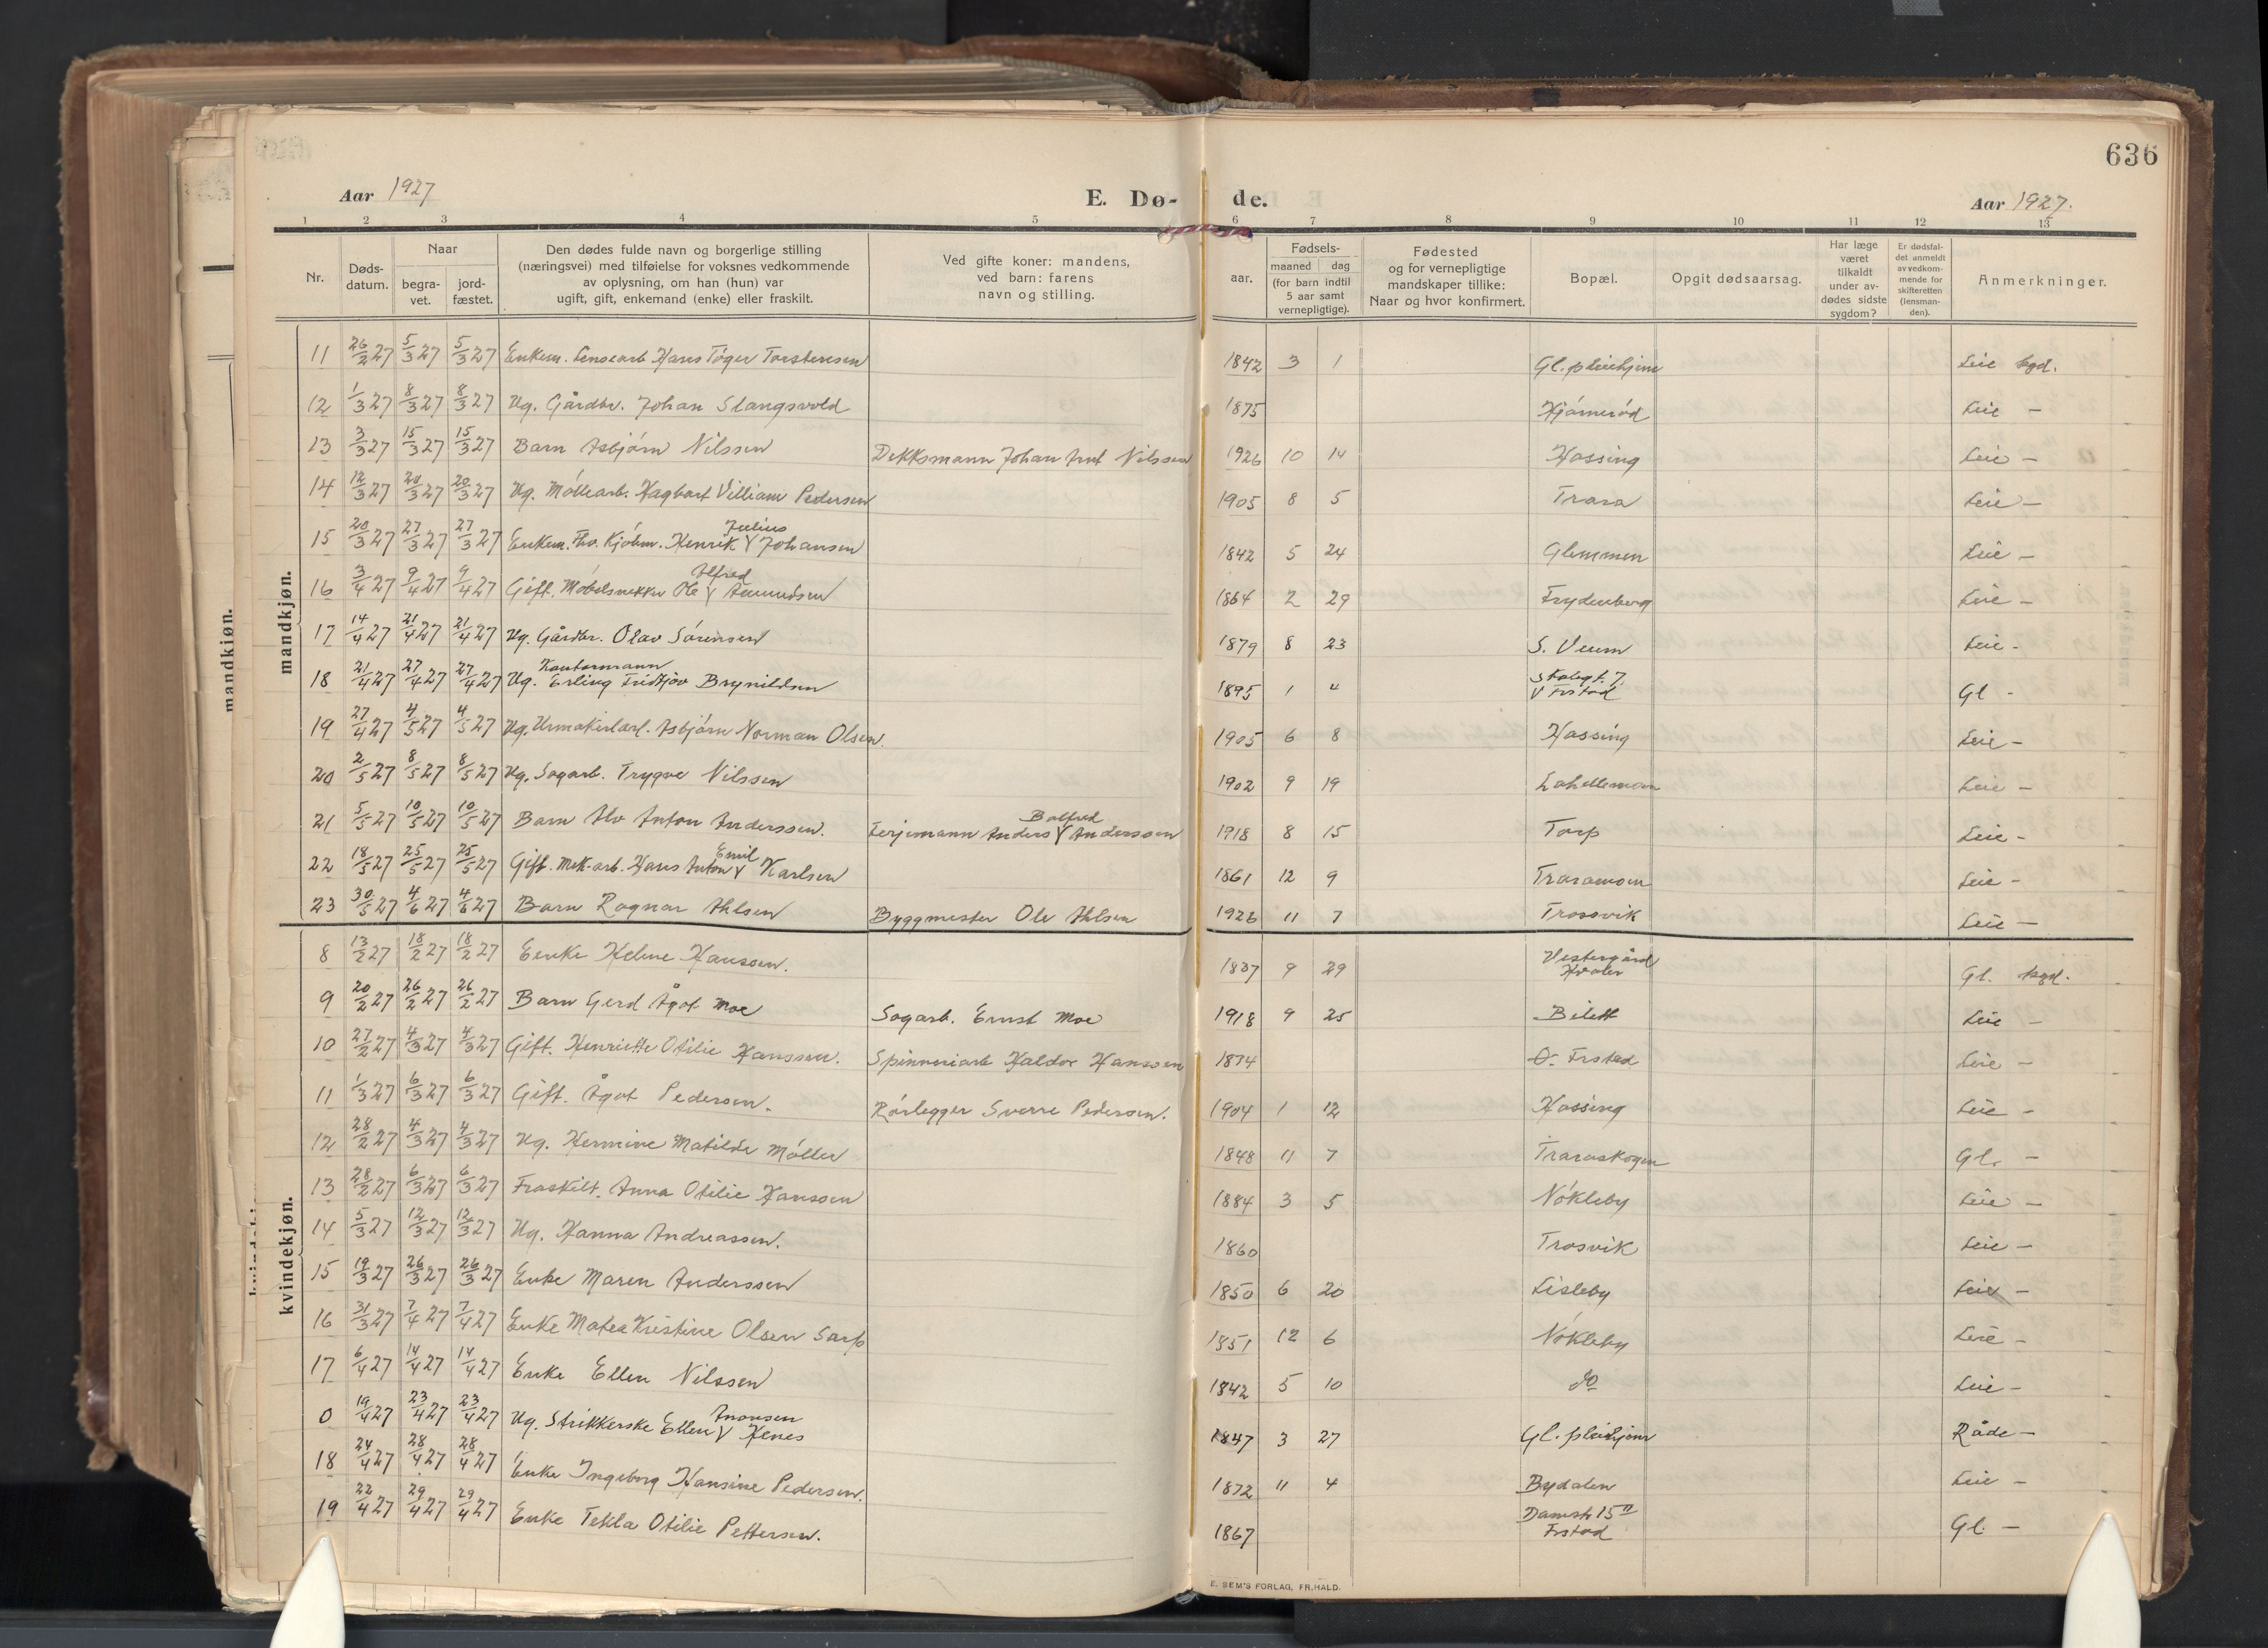 636
Aar 1927
E. Dø- de.
Aar 1927.
1 2 3 4 5 6 7 8 9 10 11 12 13
Nr.
Døds-
datum.
Naar
begra-
vet.
jord-
fæstet.
Den dødes fulde navn og borgerlige stilling
(næringsvei) med tilføielse for voksnes vedkommende
av oplysning, om han (hun) var
ugift, gift, enkemand (enke) eller fraskilt.
Ved gifte koner: mandens,
ved barn: farens
navn og stilling.
aar.
Fødsels-
maaned dag
(for barn indtil
5 aar samt
vernepligtige).
Fødested
og for vernepligtige
mandskaper tillike:
Naar og hvor konfirmert.
Bopæl.
Opgit dødsaarsag.
Har læge
været
tilkaldt
under av-
dødes sidste
sygdom?
Er dødsfal-
det anmeldt
av vedkom-
mende for
skifteretten
(lensman-
den).
Anmerkninger.
mandkjøn.
mandkjøn.
11 26/2 27 5/3 27 5/3 27 Enkem. Lensearb Hans Tøger Torstensen 1842 3 1 Gl. pleiehjem Leie kgd.
12 1/3 27 8/3 27 8/3 27 Ug. Gårdbr. Johan Slangsvold 1875 Hjørnerød Leie —
13 3/3 27 15/3 27 15/3 27 Barn Asbjørn Nilssen Dekksmann Johan Arnt Nilssen 1926 10 14 Hassing Leie —
14 12/3 27 20/3 27 20/3 27 Ug. Møllearb. Hagbart Villiam Pedersen 1905 8 5 Trara Leie —
Julius
15 20/3 27 27/3 27 27/3 27 Enkem. Fhv. Kjøbm. Henrik Y Johansen 1842 5 24 Glemmen Leie —
Alfred
16 3/4 27 9/4 27 9/4 27 Gift. Møbelsnekker Ole Y Amundsen 1864 2 29 Frydenberg Leie —
17 14/4 27 21/4 27 21/4 27 Ug. Gårdbr. Olav Sørensen 1879 8 23 S. Veum Leie -
Kontormann
18 21/4 27 27/4 27 27/4 27 Ug. Erling Fridtjov Brynildsen 1895 1 4 Storgt. 7. V Frstad Gl -
19 27/4 27 4/5 27 4/5 27 Ug. Urmakerlærl. Asbjørn Norman Olsen. 1905 6 8 Hassing Leie —
20 2/5 27 8/5 27 8/5 27 Ug. Sagarb. Trygve Nilssen 1902 9 19 Lahellemoen Leie —
Balfred
21 5/5 27 10/5 27 10/5 27 Barn Alv Anton Anderssen. Ferjemann Anders Y Anderssen 1918 8 15 Torp Leie -
Emil
22 18/5 27 25/5 27 25/5 27 Gift. Mek.arb. Hans Anton Y Karlsen 1861 12 9 Traramoen Leie —
23 30/5 27 4/6 27 4/6 27 Barn Ragnar Ahlsen Byggmester Ole Ahlsen 1926 11 7 Trossvik Leie —
kvindekjøn.
8 13/2 27 18/2 27 18/2 27 Enke Helene Hanssen. 1837 9 29 Vestergård Hvaler Gl. kgd.
9 20/2 27 26/2 27 26/2 27 Barn Gerd Ågot Moe Sagarb. Ernst Moe 1918 9 25 Bilett Leie —
10 27/2 27 4/3 27 4/3 27 Gift. Henriette Otilie Hanssen. Spinneriarb Haldor Hanssen 1874 Ø. Frstad Leie —
11 1/3 27 6/3 27 6/3 27 Gift. Ågot Pedersen. Rørlegger Sverre Pedersen. 1904 1 12 Hassing Leie —
12 28/2 27 4/3 27 4/3 27 Ug. Hermine Matilde Møller 1848 11 7 Traraskogen Gl. —
13 28/2 27 6/3 27 6/3 27 Fraskilt. Anna Otilie Hanssen 1884 3 5 Nøkleby Leie —
14 5/3 27 12/3 27 12/3 27 Ug. Hanna Andreassen. 1860 Trosvik Leie —
15 19/3 27 26/3 27 26/3 27 Enke Maren Anderssen 1850 6 20 Lisleby Leie —
16 31/3 27 7/4 27 7/4 27 Enke Matea Kristine Olsen Sarp 1851 12 6 Nøkleby Leie —
17 6/4 27 14/4 27 14/4 27 Enke Ellen Nilssen 1842 5 10 do Leie —
Aronsen
0 19/4 27 23/4 27 23/4 27 Ug. Strikkerske Ellen Y Henes 1847 3 27 Gl. pleiehjem Råde —
18 24/4 27 28/4 27 28/4 27 Enke Ingeborg Hansine Pedersen. 1872 11 4 Bydalen Leie —
19 22/4 27 29/4 27 29/4 27 Enke Tekla Otilie Pettersen. 1867 Damstr 15 II Frstad Gl. —
E. SEM'S FORLAG, FR.HALD.